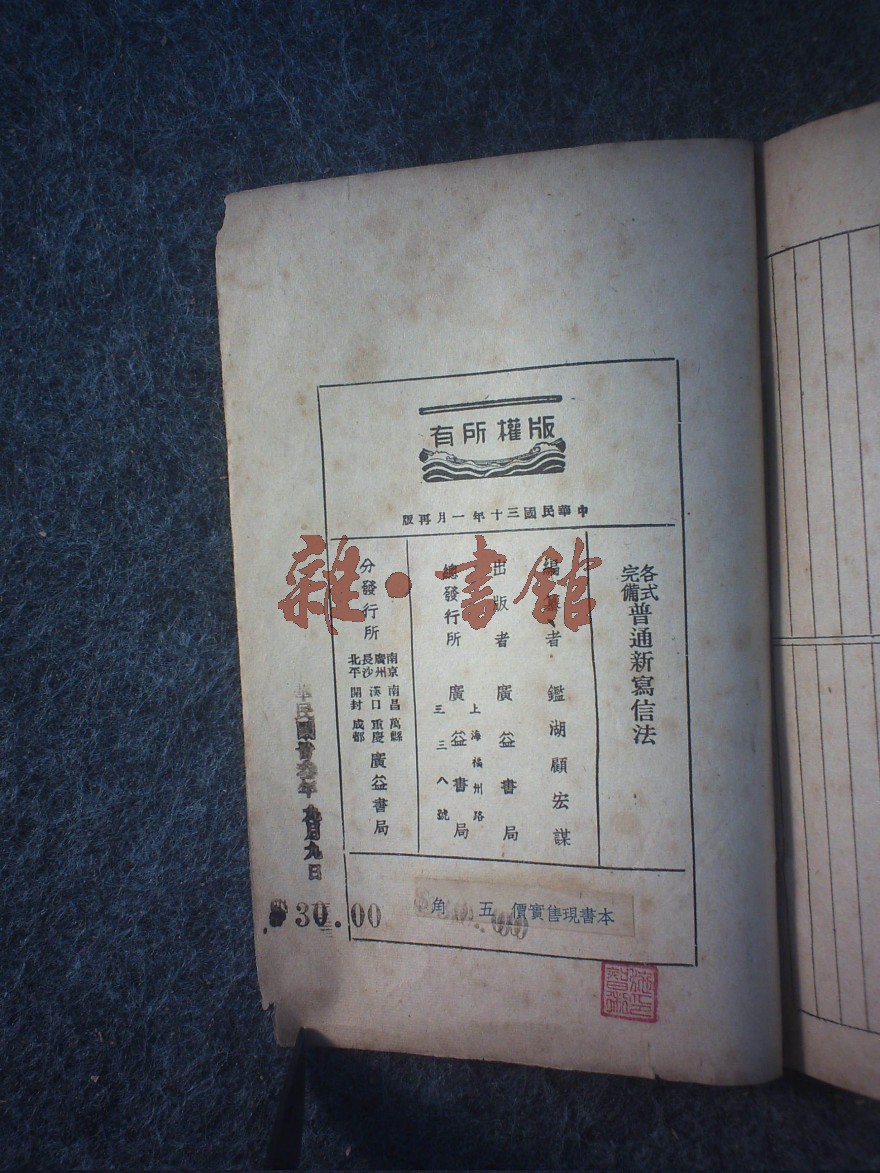 版權所有
中華民國三十年一月再版
各式完備普通新寫信法
編纂者 鑑湖顧宏謀
出版者 廣益書局
總發行所 上海福州路三三八號 廣益書局
分發行所 南京 南昌 萬縣 廣州 漢口 重慶 長沙 北平 開封 成都 廣益書局
本書現售實價 五 角
華民國廿叁年 九月九日
30.00
雜·書館